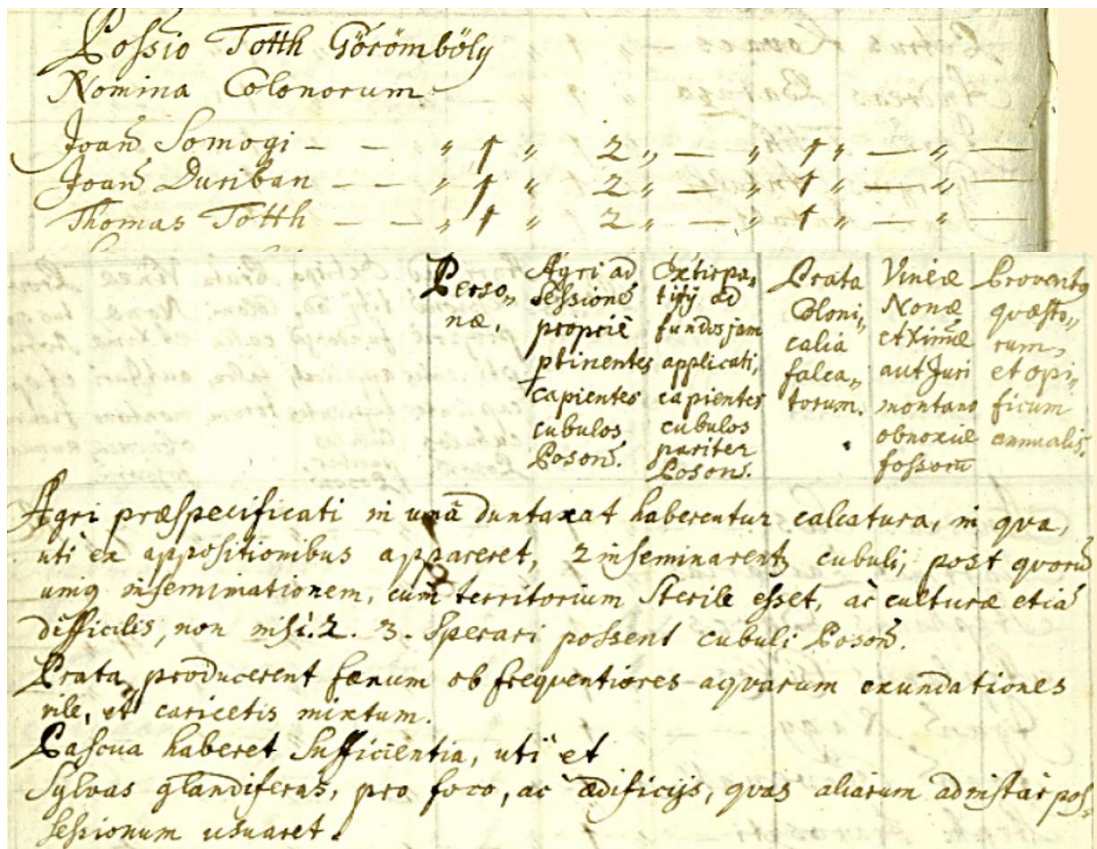 Possio Totth Görömböly
Nomina Colonorum
Joañ Somogi — — „ 1 „ 2 „ — „ 1 „ — „ —
Joañ Duriban — — „ 1 „ 2 „ — „ 1 „ — „ —
Thomas Totth — — „ 1 „ 2 „ — „ 1 „ — „ —
Perso„
næ,
Agri ad
sessione
proprie
ptinentes
capientes
cubulos
Posoñ.
Extirpa„
titij ad
fundos jam
applicati,
capientes
cubulos
pariter
Posoñ.
Prata
Coloni„
calia
falca„
torum.
Vineæ
Nonæ
et Ximæ
aut Juri
montano
obnoxiæ
fossorũ
Proventus
quæsto„
rum,
et opi„
ficum
annualis.
Agri præspecificati in unã duntaxat haberentur calcatura, in qva,
uti ex appositionibus appareret, 2 inseminarentur cubuli, post qvorũ
uniq inseminationem, cum territorium sterile esset, ac culturæ etiã
difficilis, non nisi. 2. 3. sperari possent cubuli Posoñ.
Prata, producerent fænum ob freqventiores aqvarum exundationes
vile, et caricetis mixtum.
Pascua haberet sufficientia, uti et
Sylvas glandiferas, pro foco, ac ædificijs, qvas aliarum ad instar pos„
sessionum usuaret.